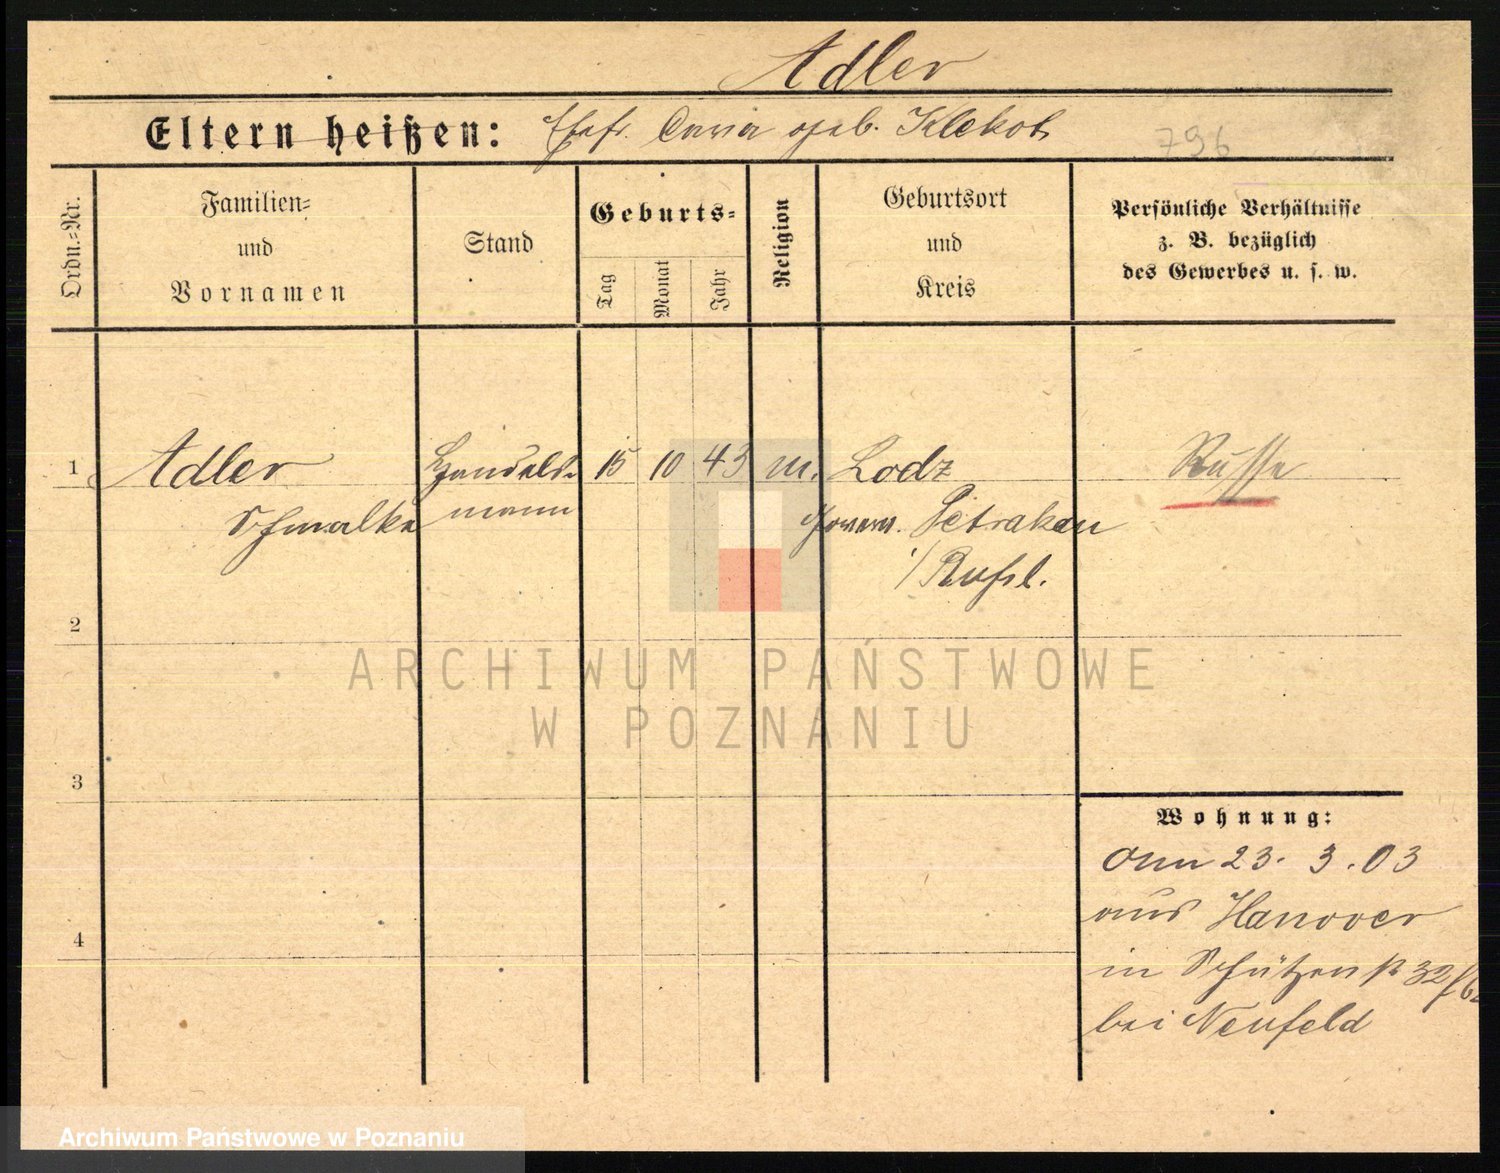 Adler
Eltern heißen: Ehefr. geb. Klekot
796
Ordn.=Nr.
Familien=
und
Vornamen
Stand
Geburts=
Tag
Monat
Jahr
Religion
Geburtsort
und
Kreis
Persönliche Verhältnisse
z. B. bezüglich
des Gewerbes u. s. w.
1 Adler Handels= 15 10 43 m. Lodz Russe
Schmalke mann Gouvern. Petrakau
i/Russl.
2
3
4
Wohnung:
23. 3. 03
aus Hanover
in Schützenstr 32
bei Neufeld
ARCHIWUM PAŃSTWOWE
W POZNANIU
Archiwum Państwowe w Poznaniu